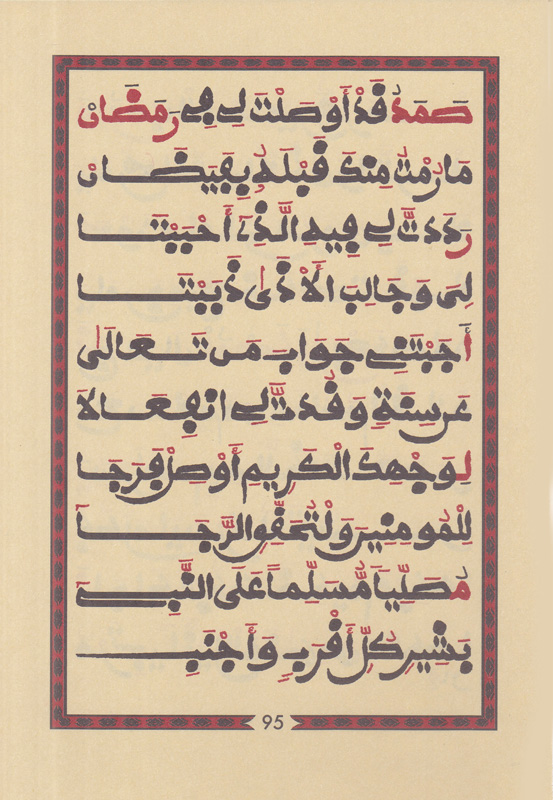 صَمَدُ قَدْ أَوْصَلْتَ لِي فِي رَمَضَانْ
مَا رُمْتُ مِنكَ قَبْلَهُ بِفَيَضَانْ
رَدَدتَّ لِي فِيهِ الَّذِي أَحْيَيْتَا
لِيَ وَجَالِبَ الْأَذَى ذَبَبْتَا
أَجَبْتَنِي جَوَابَ مَن تَعَالَى
عَن سِنَةٍ وَقُدتَّ لِي انفِعَالَا
لِوَجْهِكَ الْكَرِيمِ أَوْصِلْ فَرَجَا
لِلْمُومِنِينَ وَلْتُحَقِّقِ الرَّجَا
مُصَلِّياً مُّسَلِّماً عَلَى النَّبِي
بَشِيرِ كُلِّ أَقْرَبٍ وَأَجْنَبِ
95